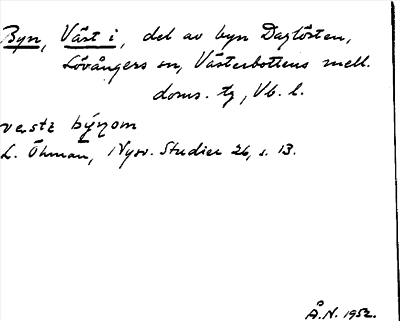 Byn, Väst i, del av byn Daglösten,
Lövångers sn, Västerbottens mell.
doms. tg, Vb. l.
vestɛ býnom
L. Öhman, Nysv. Studier 26, s. 13.
Å.N. 1952.